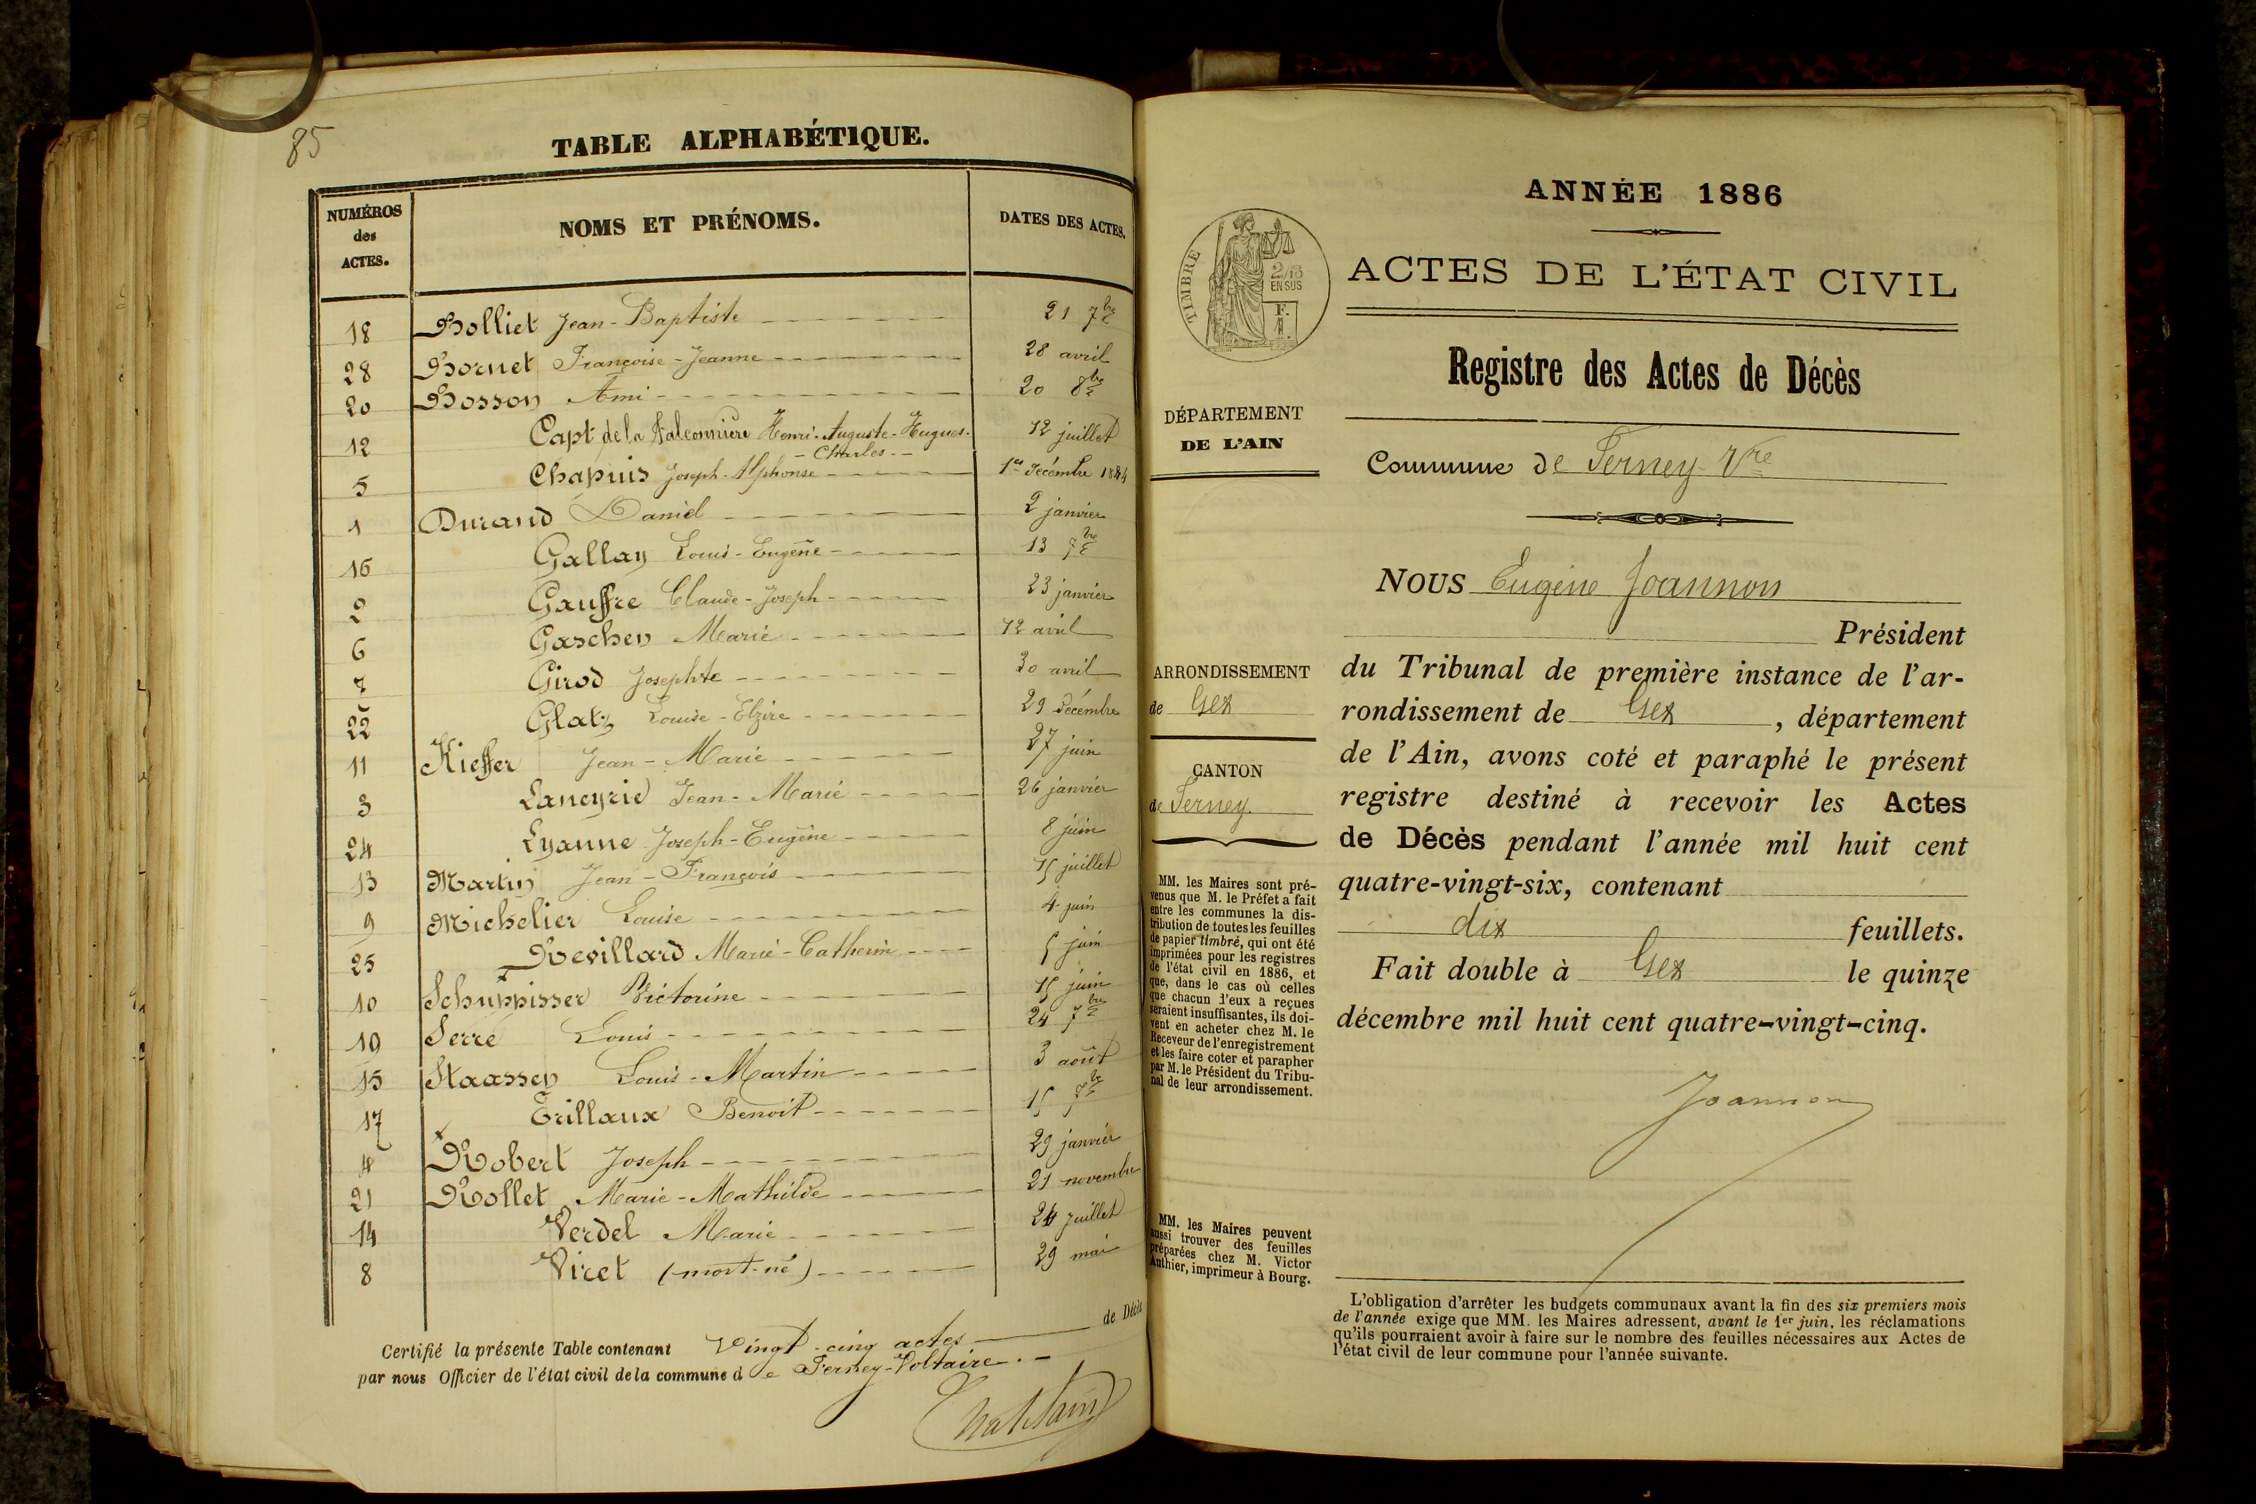 85
TABLE ALPHABÉTIQUE.
NUMÉROS des ACTES. NOMS ET PRÉNOMS. DATES DES ACTES.
18 Bolliet Jean-Baptiste 21 7bre
28 Bornet Françoise-Jeanne 28 avril
20 Bosson Ami 20 8bre
12 Capt de la Falconnière Henri-Auguste-Hugues- 12 juillet
- Charles -
5 Chapuis Joseph-Alphonse 1er Décembre 1884
1 Durand Daniel 2 janvier
16 Gallay Louis-Eugène 13 7bre
2 Gauffre Claude-Joseph 23 janvier
6 Gaschen Marie 12 avril
7 Girod Josephte 30 avril
22 Glatz Louise-Elzire 29 Décembre
11 Kieffer Jean-Marie 27 juin
3 Laneyrie Jean-Marie 26 janvier
24 Lyanne Joseph-Eugène 8 juin
13 Martin Jean-François 15 juillet
9 Michelier Louise 4 juin
25 Revillard Marie-Catherin 5 juin
10 Schuppisser Victorine 15 juin
19 Serre Louis 24 7bre
15 Staassen Louis-Martin 3 août
17 Trillaux Benoit 15 7bre
4 Robert Joseph 29 janvier
21 Rollet Marie-Mathilde 21 novembre
14 Verdel Marie 24 juillet
8 Viret (mort-né) 29 mai
Certifié la présente Table contenant Vingt-cinq actes de Décès
par nous Officier de l'état civil de la commune de Ferney-Voltaire.
ANNÉE 1886
TIMBRE
2/10 EN SUS
F.
1.
ACTES DE L'ÉTAT CIVIL
Registre des Actes de Décès
DÉPARTEMENT
DE L'AIN
Commune de Ferney-Vre
NOUS Eugène Joannon
Président
du Tribunal de première instance de l'ar-
rondissement de Gex, département
de l'Ain, avons coté et paraphé le présent
registre destiné à recevoir les Actes
de Décès pendant l'année mil huit cent
quatre-vingt-six, contenant
dix feuillets.
Fait double à Gex le quinze
décembre mil huit cent quatre-vingt-cinq.
Joannon
ARRONDISSEMENT
de Gex
CANTON
de Ferney.
MM. les Maires sont pré-
venus que M. le Préfet a fait
entre les communes la dis-
tribution de toutes les feuilles
de papier timbré, qui ont été
imprimées pour les registres
de l'état civil en 1886, et
que, dans le cas où celles
que chacun d'eux a reçues
seraient insuffisantes, ils doi-
vent en acheter chez M. le
Receveur de l'enregistrement
et les faire coter et parapher
par M. le Président du Tribu-
nal de leur arrondissement.
MM. les Maires peuvent
aussi trouver des feuilles
préparées chez M. Victor
Authier, imprimeur à Bourg.
L'obligation d'arrêter les budgets communaux avant la fin des six premiers mois
de l'année exige que MM. les Maires adressent, avant le 1er juin, les réclamations
qu'ils pourraient avoir à faire sur le nombre des feuilles nécessaires aux Actes de
l'état civil de leur commune pour l'année suivante.